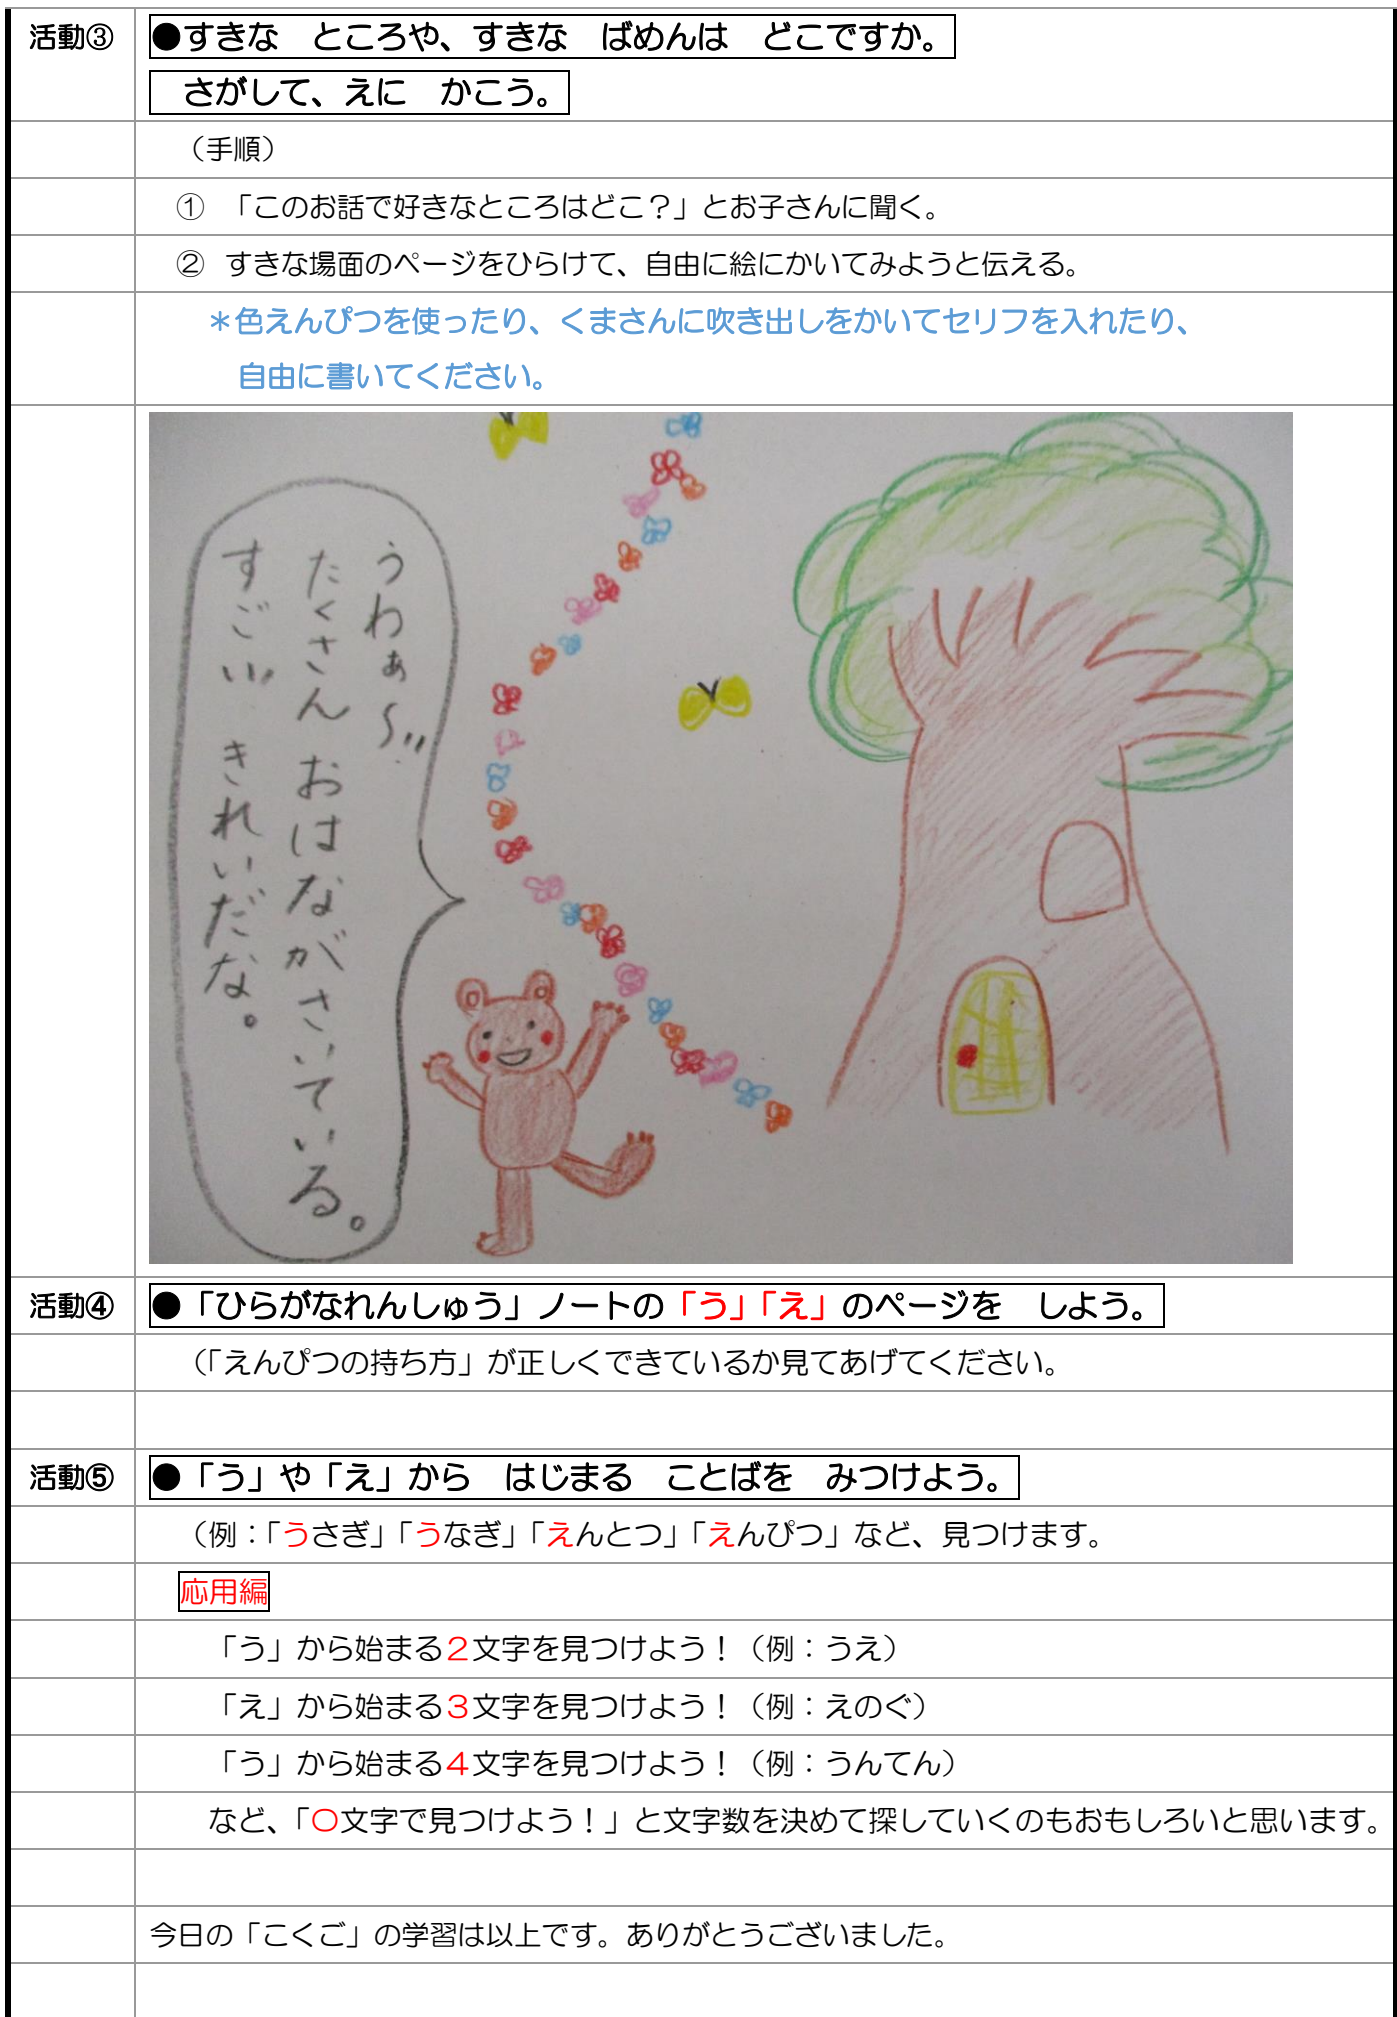 活動③
●すきな　ところや、すきな　ばめんは　どこですか。
さがして、えに　かこう。
（手順）
①　「このお話で好きなところはどこ？」とお子さんに聞く。
②　すきな場面のページをひらけて、自由に絵にかいてみようと伝える。
＊色えんぴつを使ったり、くまさんに吹き出しをかいてセリフを入れたり、
自由に書いてください。
うわぁ〜!!
たくさん おはながさいている。
すごい!! きれいだな。
活動④
●「ひらがなれんしゅう」ノートの「う」「え」のページを　しよう。
（「えんぴつの持ち方」が正しくできているか見てあげてください。
活動⑤
●「う」や「え」から　はじまる　ことばを　みつけよう。
（例：「うさぎ」「うなぎ」「えんとつ」「えんぴつ」など、見つけます。
応用編
「う」から始まる２文字を見つけよう！（例：うえ）
「え」から始まる３文字を見つけよう！（例：えのぐ）
「う」から始まる４文字を見つけよう！（例：うんてん）
など、「〇文字で見つけよう！」と文字数を決めて探していくのもおもしろいと思います。
今日の「こくご」の学習は以上です。ありがとうございました。